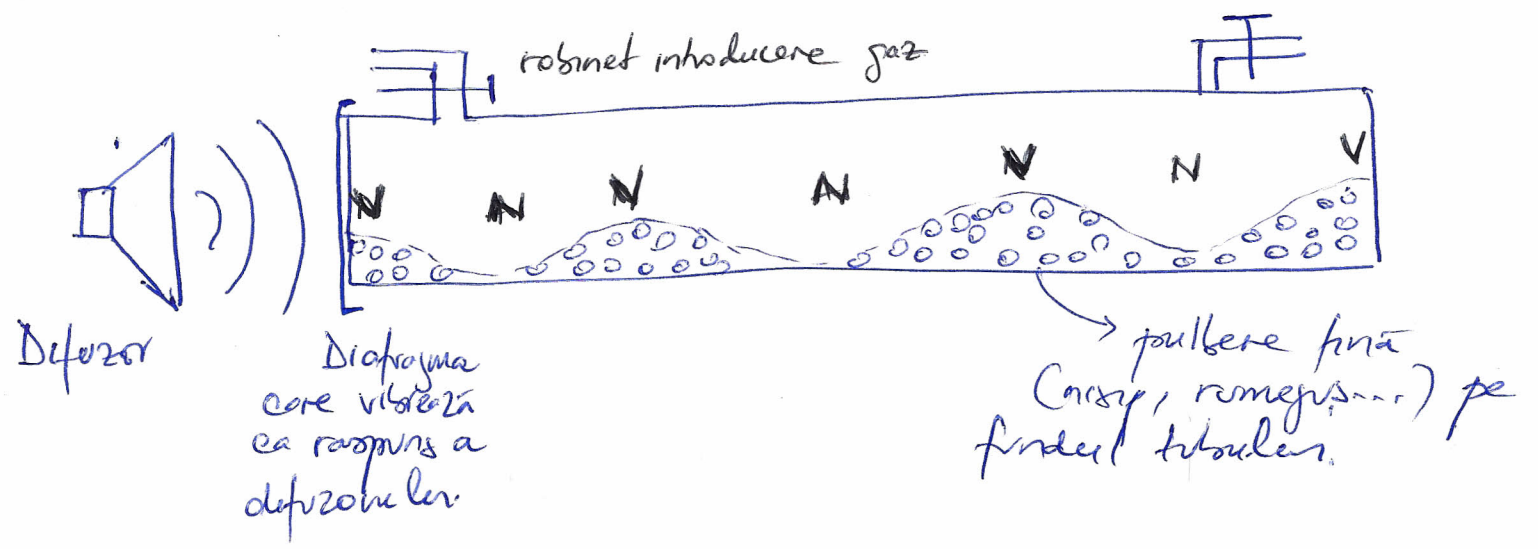 robinet introducere gaz
N AN N AN N N V
Difuzor
Diafragma
care vibrează
ca raspuns a
difuzorului.
pulbere fină
(nisip, rumeguș...) pe
fundul tubului.